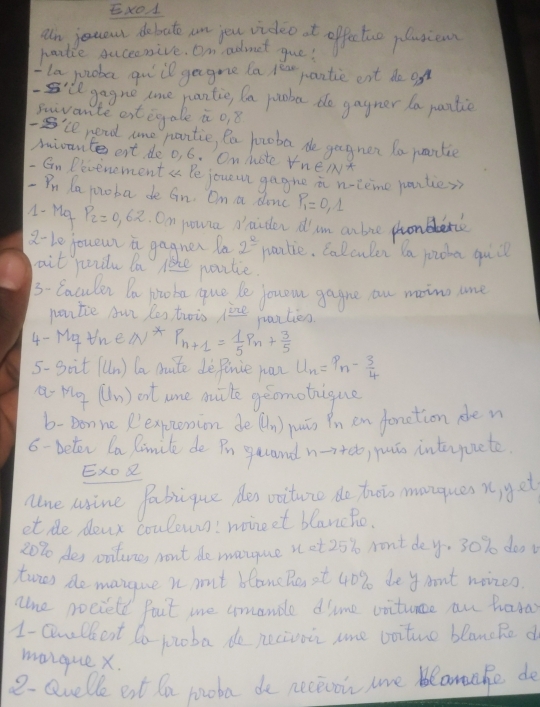 Exo 1
Un joueur debute un jeu vidéo et effectue plusieur
partie successive. On admet que :
- La proba qu'il gagne la 1ère partie est de 0,1
- S'il gagne une partie, la proba de gagner la partie
suivante est égale à 0,8
- S'il perd une partie, la proba de gagner la partie
suivante est de 0,6. On note ∀n∈N*
- Gn l'évènement « le joueur gagne à n-ième partie»
- Pn la proba de Gn. On a donc P1=0,1
1- Mq P2=0,62. On poura s'aider d'un arbre pondéré
2- Le joueur à gagner la 2e partie. Calculer la proba qu'il
ait perdu la 1ère partie.
3- Caculer la proba que le joueur gagne au moins une
partie sur les trois 1ère parties
4- Mq ∀n∈N* Pn+1 = 1/5 Pn + 3/5
5- Soit (Un) la suite définie par Un = Pn - 3/4
a- Mq (Un) est une suite géometrique
b- Donne l'expression de (Un) puis Pn en fonction de n
6- Deter la limite de Pn quand n→+∞, puis interprete.
Exo 2
Une usine fabrique des voiture de trois marques x, y et
et de deux couleurs : noire et blanche.
20% des voitures sont de marque x et 25% sont de y. 30% des v
tures de marque x sont blanches et 40% de y sont noires.
Une société fait une comande d'une voiture au hasa
1- Quelle est la proba de recevoir une voiture blanche d
marque X.
2- Quelle est la proba de recevoir une blanche de